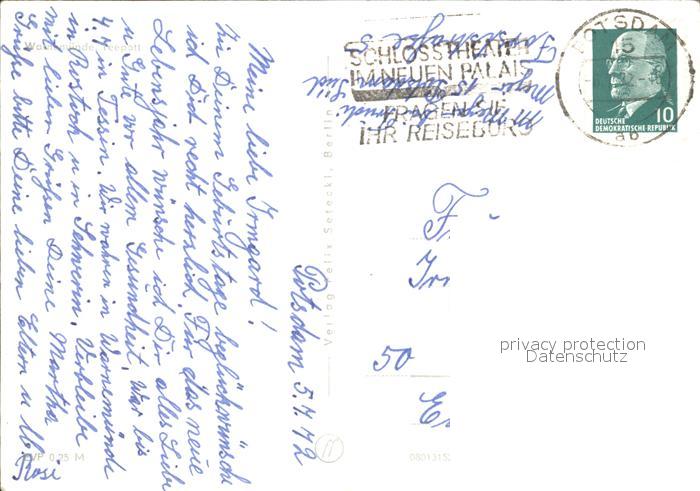 Warnemünde, Teepott
Potsdam 5.7.72
Meine liebe Irmgard!
Zu Deinem Geburtstage beglückwünsche
ich Dich recht herzlich. Für das neue
Lebensjahr wünsche ich Dir alles Liebe
u Gute vor allem Gesundheit. War bis
4.7. in Tessin. Wir waren in Warnemünde
in Rostock u in Schwerin. Verbleibe
mit lieben Grüßen Deine Martha
Grüße bitte Deine lieben Eltern u
Rosi
EVP 0,25 M
Verlag Felix Setecki, Berlin
SCHLOSSTHEATER
IM NEUEN PALAIS
FRAGEN SIE
IHR REISEBÜRO
POTSDAM
15
ab
10
DEUTSCHE
DEMOKRATISCHE REPUBLIK
F
Ir
50
E
privacy protection
Datenschutz